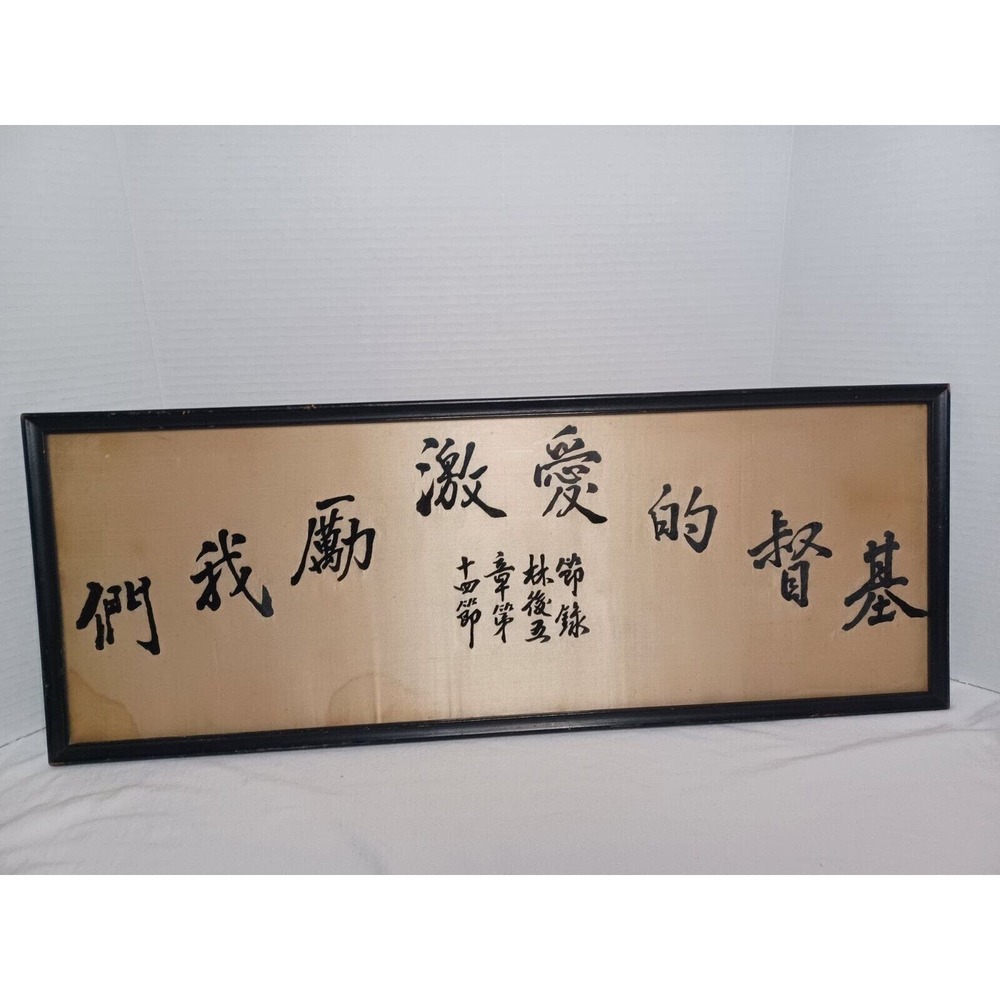 基督的愛激勵我們
節錄
林後五
章第
十四節